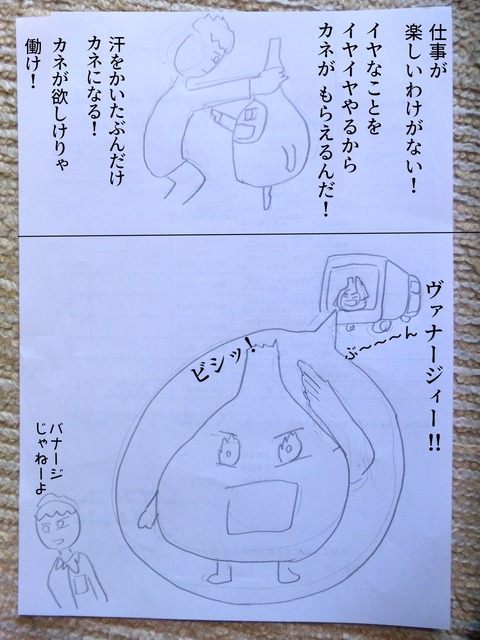 仕事が
楽しいわけがない!
イヤなことを
イヤイヤやるから
カネが もらえるんだ!
汗をかいたぶんだけ
カネになる!
カネが欲しけりゃ
働け!
ヴァナージィー!!
ぶ〜〜〜ん
ビシッ!
バナージ
じゃねーよ